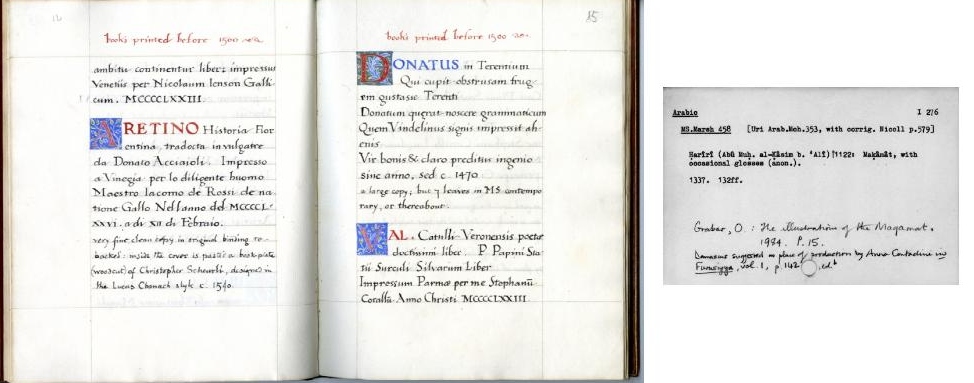 14
books printed before 1500
ambitu continentur liber: impressus
Venetiis per Nicolaum Ienson Galli
cum. MCCCCLXXIII
ARETINO Historia Fior
entina, tradocta in vulgare
da Donato Acciaioli. Impresso
a Vinegia per lo diligente huomo
Maestro Iacomo de Rossi de na
tione Gallo Nellanno del MCCCCL
XXVI. a di XII di Febraio.
very fine clean copy in original binding re-
backed: inside the cover is pasted a book-plate
(woodcut) of Christopher Scheurls, designed in
the Lucas Chranach style c. 1540.
15
books printed before 1500
DONATUS in Terentium
Qui cupit obstrusam frug
em gustasse Terenti
Donatum querat noscere grammaticum
Quem Vindelinus signis impressit ah-
enis
Vir bonis & claro preditus ingenio
sine anno, sed c. 1470
a large copy, but 7 leaves in MS contempo
rary, or thereabout.
VAL. Catulli Veronensis poetae
doctissimi liber. P. Papini Sta
tii Surculi Silvarum Liber
Impressum Parmae per me Stephanū
Corallū Anno Christi MCCCCLXXIII
Arabic I 276
MS.Marsh 458 [Uri Arab.Moh.353, with corrig. Nicoll p.579]
Ḥarīrī (Abū Muḥ. al-Ḳāsim b. 'Alī)†1122: Maḳāmāt, with
occasional glosses (anon.).
1337. 132ff.
Grabar, O.: The illustrations of the Maqamat.
1984. P.15.
Damascus suggested as place of production by Anna Contadini in
Furusiyya, vol. 1, p.142